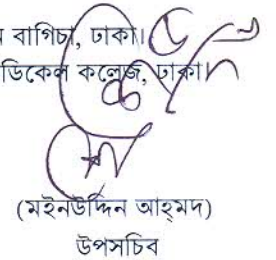 বাগিচা, ঢাকা।
ডিকেল কলেজ, ঢাকা।
(মইনউদ্দিন আহ্‌মদ)
উপসচিব